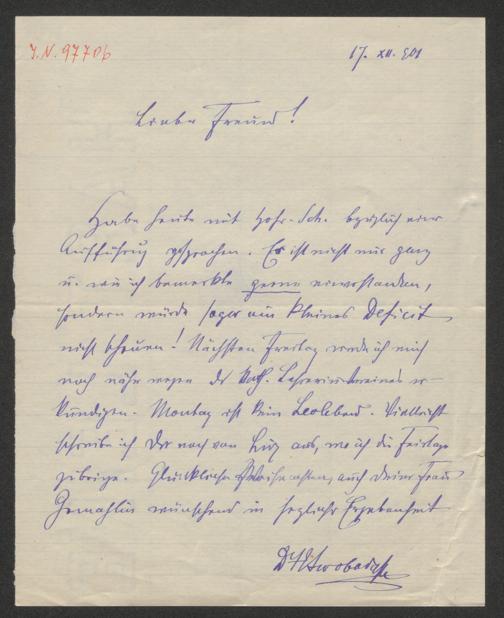 J.N. 97706
17. XII. 901
Lieber Freund!
Habe heute mit Hofr. Sch. bezüglich einer
Aufführung gesprochen. Er ist nicht nur ganz
u. wie ich bemerkte gerne einverstanden,
sondern würde sogar ein kleines Deficit
nicht scheuen! Nächsten Freitag werde ich mich
noch näher wegen des Kath. Lehrerinvereines er-
kundigen. Montag ist kein Leoabend. Vielleicht
schreibe ich Dir noch von Linz aus, wo ich die Feiertage
zubringe. Glückliche Weihnachten, auch Deiner Frau
Gemahlin wünschend in herzlicher Ergebenheit
Dr H Swoboda